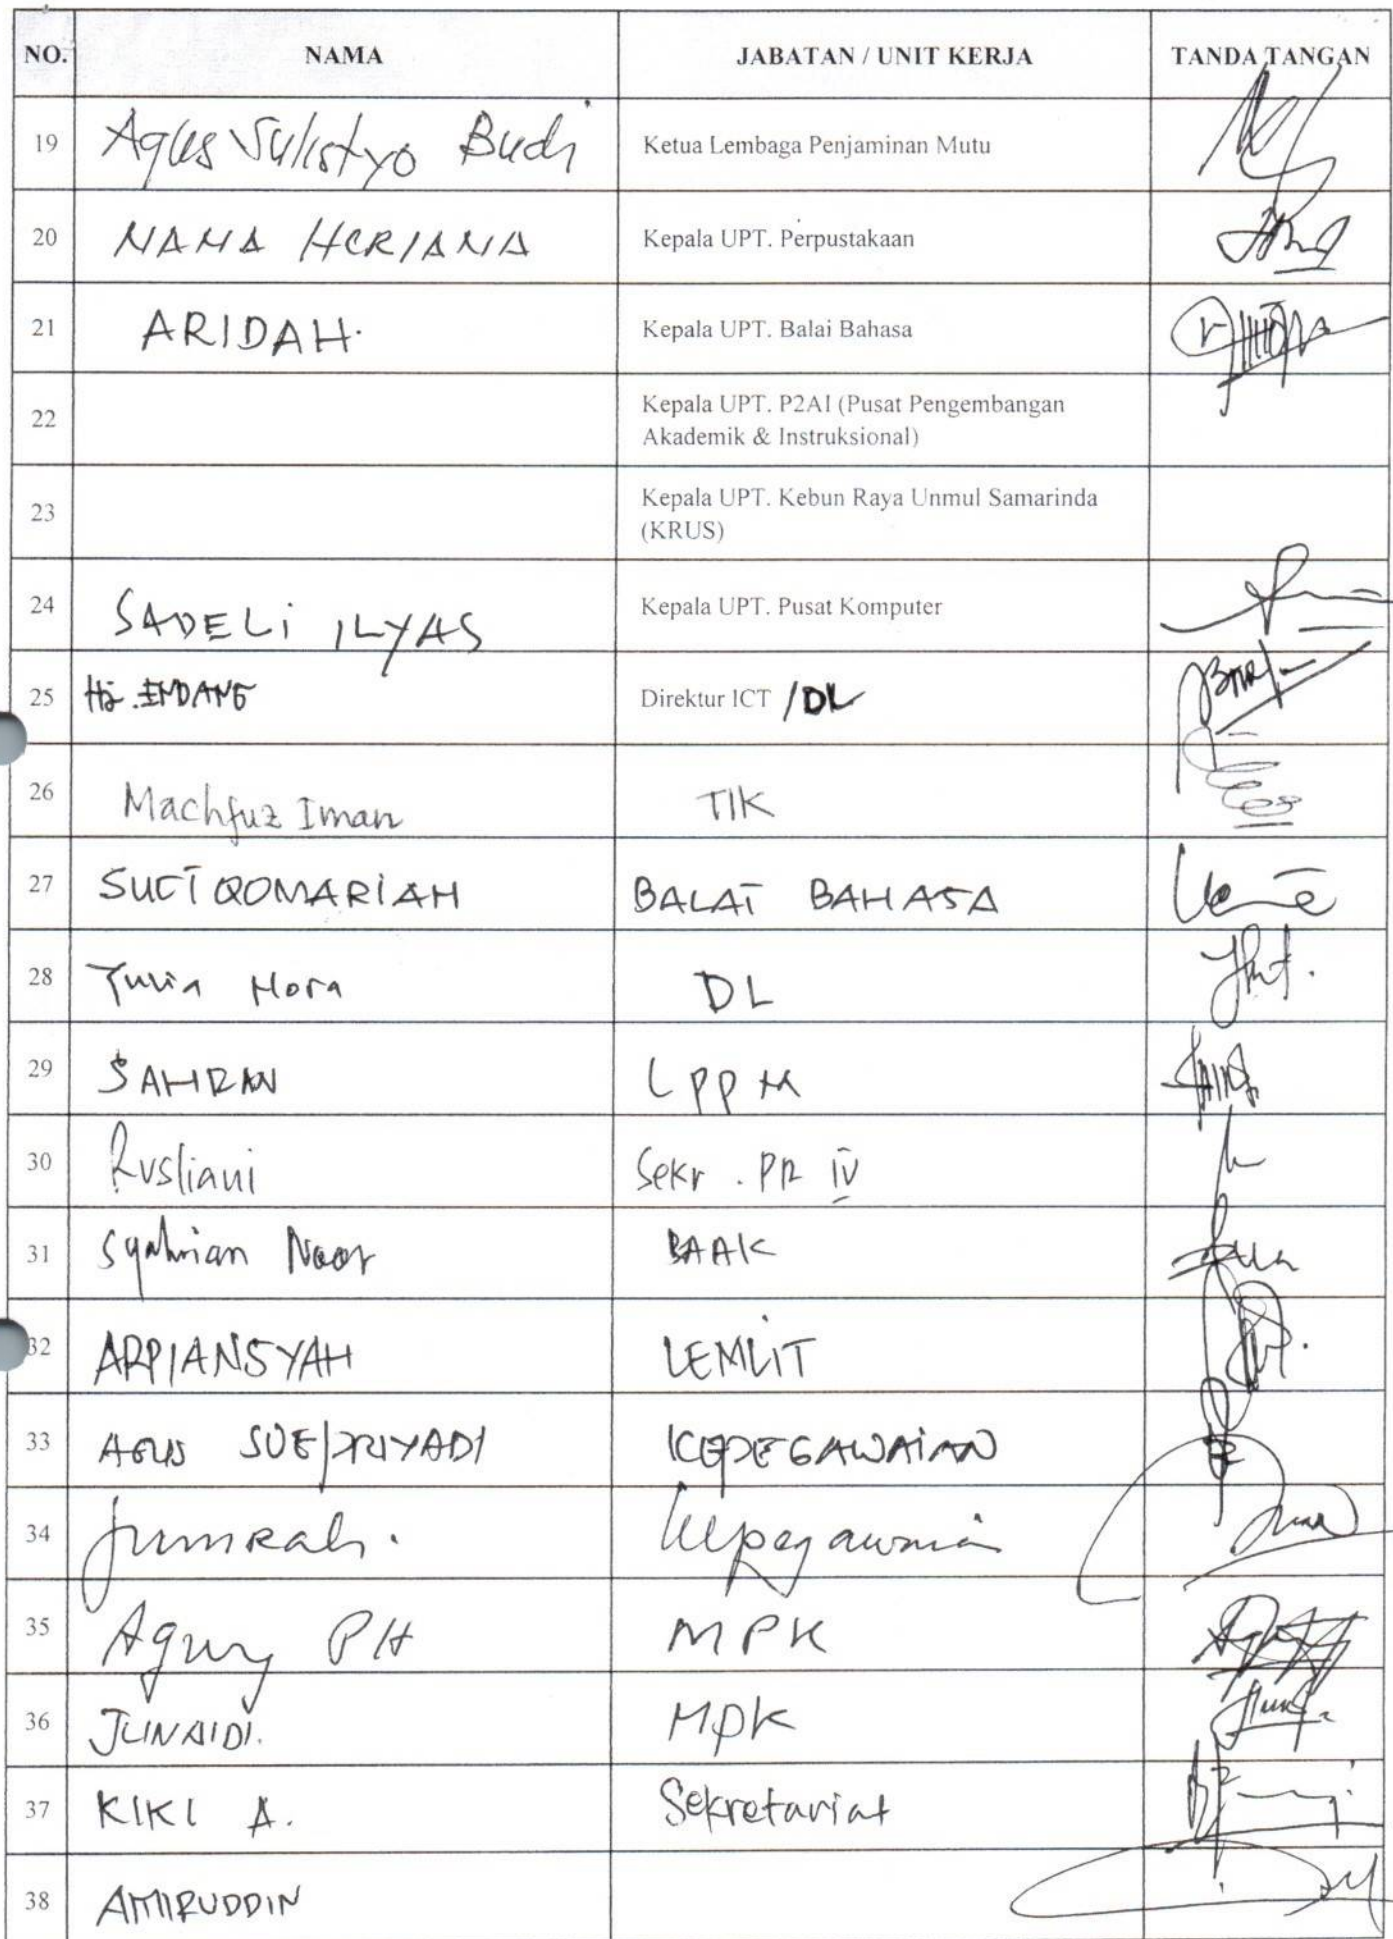 NO. NAMA JABATAN / UNIT KERJA TANDA TANGAN
19 Agus Sulistyo Budi Ketua Lembaga Penjaminan Mutu
20 NANA HERIANA Kepala UPT. Perpustakaan
21 ARIDAH. Kepala UPT. Balai Bahasa
22 Kepala UPT. P2AI (Pusat Pengembangan
Akademik & Instruksional)
23 Kepala UPT. Kebun Raya Unmul Samarinda
(KRUS)
24 SADELI ILYAS Kepala UPT. Pusat Komputer
25 Hj. ENDANG Direktur ICT /DL
26 Machfuz Iman TIK
27 SUCI QOMARIAH BALAI BAHASA
28 DL
29 SAHRAN LPPM
30 Rusliani Sekr. PR IV
31 Syahrian Noor BAAK
32 ARPIANSYAH LEMLIT
33 AGUS KEPEGAWAIAN
34 Jumrah. Kepegawaian
35 Agung PH MPK
36 JUNAIDI. MPK
37 KIKI A. Sekretariat
38 AMIRUDDIN